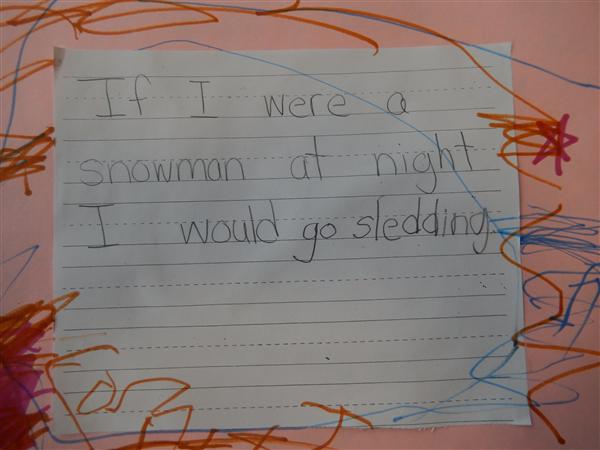 If I were a
snowman at night
I would go sledding.